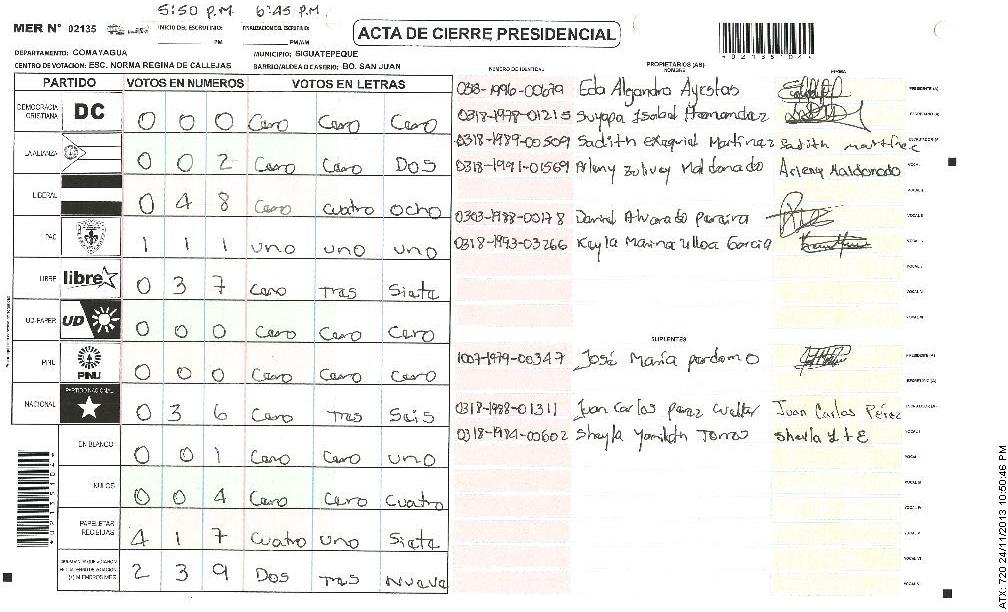 5:50 P.M. 6:45 P.M.
MER N° 02135 INICIO DEL ESCRUTINIO: PM FINALIZACION DEL ESCRUTINIO: PM/AM
ACTA DE CIERRE PRESIDENCIAL
DEPARTAMENTO: COMAYAGUA MUNICIPIO: SIGUATEPEQUE
CENTRO DE VOTACION: ESC. NORMA REGINA DE CALLEJAS BARRIO/ALDEA O CASERIO: BO. SAN JUAN
PARTIDO VOTOS EN NUMEROS VOTOS EN LETRAS
DEMOCRACIA CRISTIANA DC 0 0 0 Cero Cero Cero
LA ALIANZA 0 0 2 Cero Cero Dos
LIBERAL 0 4 8 Cero cuatro ocho
PAC 1 1 1 uno uno uno
LIBRE libre 0 3 7 Cero Tres Siete
UD-FAPER UD 0 0 0 Cero Cero Cero
PINU PINU 0 0 0 Cero Cero Cero
NACIONAL PARTIDO NACIONAL 0 3 6 Cero Tres Seis
EN BLANCO 0 0 1 Cero Cero uno
NULOS 0 0 4 Cero Cero Cuatro
PAPELETAS RECIBIDAS 4 1 7 Cuatro uno Siete
2 3 9 Dos Tres Nueve
NUMERO DE IDENTIDAD PROPIETARIOS (AS) NOMBRE FIRMA
0318-1996-00679 Eda Alejandra Ayestas PRESIDENTE (A)
0318-1978-01215 Suyapa Isabel Hernandez SECRETARIO (A)
0318-1989-00509 Sadith Exequiel Martinez Sadith martinez ESCRUTADOR (A)
0318-1991-01569 Arleny Zulivey Maldonado Arleny Maldonado VOCAL I
VOCAL II
0303-1988-00178 Daniel Alvarado Pereira VOCAL III
0318-1993-03266 Keyla Marina Ulloa Garcia
SUPLENTES
1007-1979-00347 José María perdomo PRESIDENTE (A)
SECRETARIO (A)
0318-1988-01311 Juan Carlos perez Juan Carlos Pérez ESCRUTADOR (A)
0318-1984-00602 Sheyla Yamileth Torres VOCAL I
ATX: 720 24/11/2013 10:50:46 PM